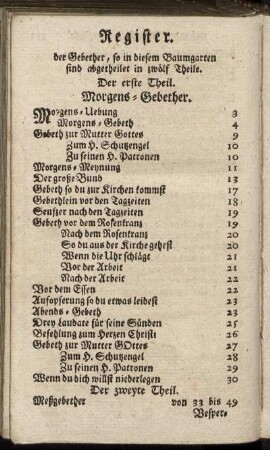 Register.
der Gebether, so in diesem Baumgarten
sind abgetheilet in zwölf Theile.
Der erste Theil.
Morgens-Gebether.
Morgens-Uebung 3
Morgens-Gebeth 4
Gebeth zur Mutter Gottes 9
Zum H. Schutzengel 10
Zu seinen H. Patronen 10
Morgens-Meynung 11
Der große Bund 13
Gebeth so du zur Kirchen kommst 17
Gebethlein vor den Tagzeiten 18
Seufzer nach den Tagzeiten 19
Gebeth vor dem Rosenkranz 19
Nach dem Rosenkranz 20
So du aus der Kirche gehest 20
Wenn die Uhr schlägt 21
Vor der Arbeit 21
Nach der Arbeit 22
Vor dem Essen 22
Aufopferung so du etwas leidest 23
Abends-Gebeth 23
Drey Laudate für seine Sünden 25
Befehlung zum Herzen Christi 26
Gebeth zur Mutter GOttes 27
Zum H. Schutzengel 28
Zu seinen H. Patronen 29
Wenn du dich willst niederlegen 30
Der zweyte Theil.
Meßgebether von 33 bis 49
Vesper-